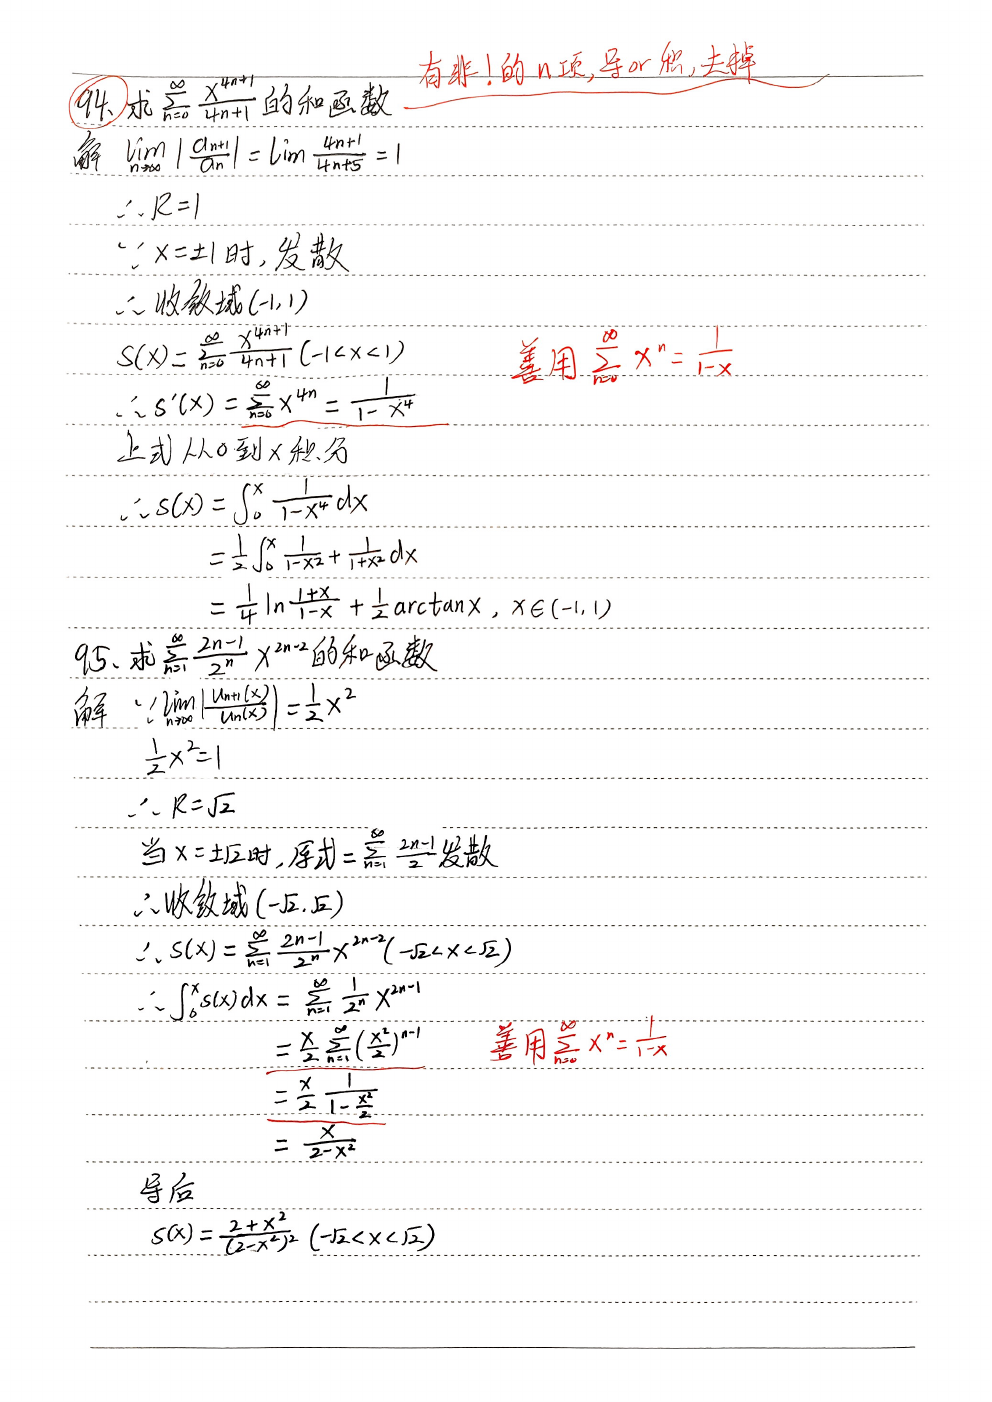 有非！的n项，导or积，去掉
94. 求 ∑_{n=0}^{∞} x^{4n+1}/(4n+1) 的和函数
解 lim_{n→∞} |a_{n+1}/a_n| = lim (4n+1)/(4n+5) = 1
∴ R=1
∵ x=±1时，发散
∴ 收敛域(-1,1)
S(x) = ∑_{n=0}^{∞} x^{4n+1}/(4n+1) (-1<x<1)
善用 ∑_{n=0}^{∞} x^n = 1/(1-x)
∴ S'(x) = ∑_{n=0}^{∞} x^{4n} = 1/(1-x^4)
上式从0到x积分
∴ S(x) = ∫_0^x 1/(1-x^4) dx
= 1/2 ∫_0^x 1/(1-x^2) + 1/(1+x^2) dx
= 1/4 ln (1+x)/(1-x) + 1/2 arctanx , x∈(-1,1)
95. 求 ∑_{n=1}^{∞} (2n-1)/2^n x^{2n-2} 的和函数
解 ∵ lim_{n→∞} |u_{n+1}(x)/u_n(x)| = 1/2 x^2
1/2 x^2 = 1
∴ R=√2
当x=±√2时，原式= ∑_{n=1}^{∞} (2n-1)/2 发散
∴ 收敛域(-√2,√2)
∴ S(x) = ∑_{n=1}^{∞} (2n-1)/2^n x^{2n-2} (-√2<x<√2)
∴ ∫_0^x S(x)dx = ∑_{n=1}^{∞} 1/2^n x^{2n-1}
= x/2 ∑_{n=1}^{∞} (x^2/2)^{n-1}
善用 ∑_{n=0}^{∞} x^n = 1/(1-x)
= x/2 1/(1-x^2/2)
= x/(2-x^2)
导后
S(x) = (2+x^2)/(2-x^2)^2 (-√2<x<√2)